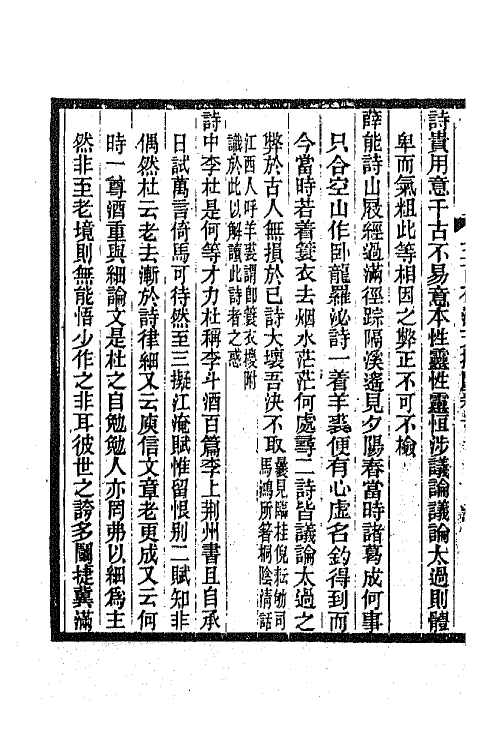 詩貴用意千古不易意本性靈性靈恒涉議論議論太過則體
卑而氣粗此等相因之弊正不可不檢
薛能詩山屐經過滿徑踪隔溪遙見夕陽舂當時諸葛成何事
只合空山作卧龍羅泌詩一着羊裘便有心虛名釣得到而
今當時若着簑衣去烟水茫茫何處尋二詩皆議論太過之
弊於古人無損於已詩大壞吾決不取
曩見臨桂倪耘劬司
馬鴻所著桐陰清話
江西人呼羊裘謂卽簑衣檢附
識於此以解讀此詩者之惑
詩中李杜是何等才力杜稱李斗酒百篇李上荆州書且自承
日試萬言倚馬可待然至三擬江淹賦惟留恨別二賦知非
偶然杜云老去漸於詩律細又云庾信文章老更成又云何
時一尊酒重與細論文是杜之自勉勉人亦罔弗以細爲主
然非至老境則無能悟少作之非耳彼世之誇多鬬捷冀滿